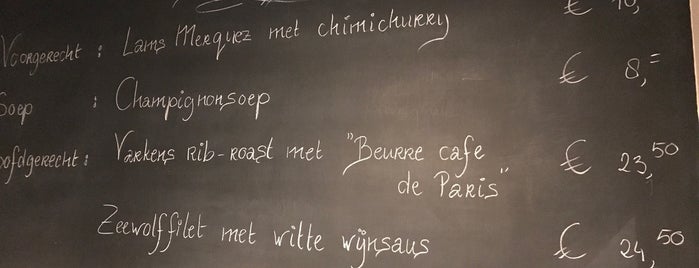 Voorgerecht : Lams Merquez met chimichurry € 10,
Soep : Champignonsoep € 8,=
oofdgerecht : Varkens Rib-roast met "Beurre cafe € 23,50
de Paris"
Zeewolffilet met witte wijnsaus € 24,50